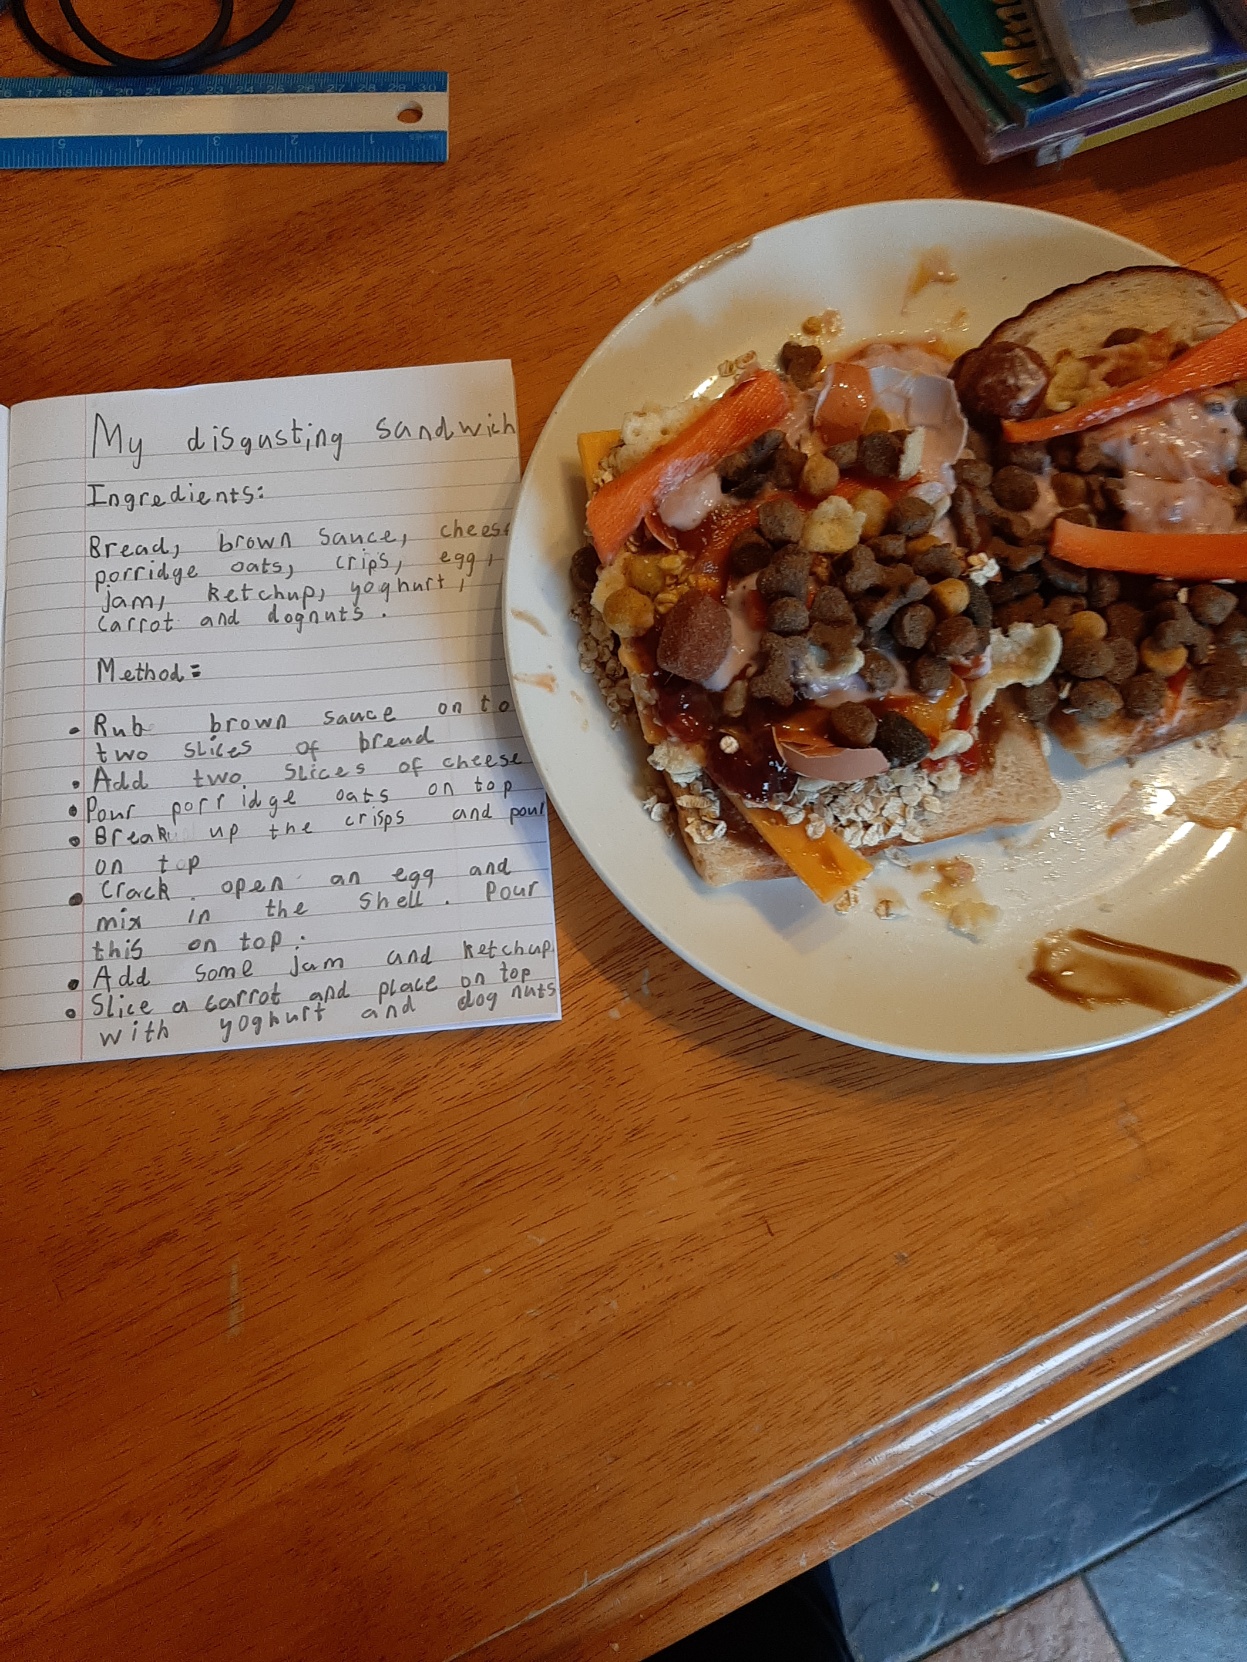 16 17 18 19 20 21 22 23 24 25 26 27 28 29 30
5 4 3 2 1 inches
My disgusting sandwich
Ingredients:
Bread, brown sauce, cheese
porridge oats, crips, egg,
jam, ketchup, yoghurt,
carrot and dognuts.
Method=
• Rub brown sauce on to
two slices of bread
• Add two slices of cheese
• Pour porridge oats on top
• Break up the crisps and pour
on top
• Crack open an egg and
mix in the shell. Pour
this on top.
• Add some jam and ketchup
• Slice a carrot and place on top
with yoghurt and dog nuts